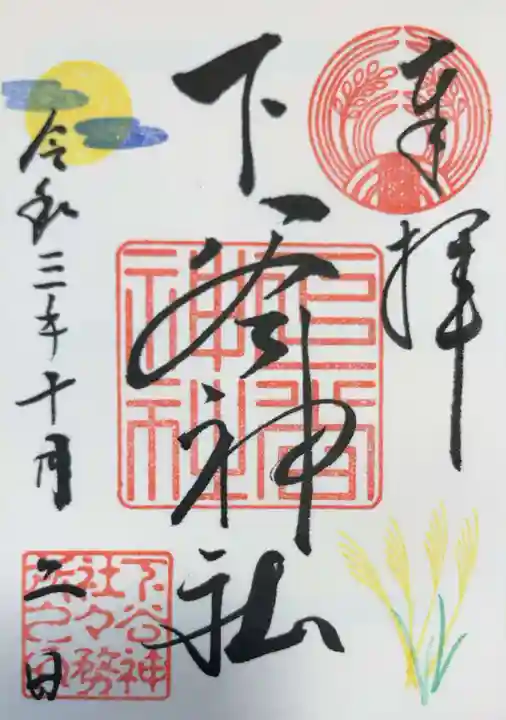 奉拝
下谷神社
下谷
神社
令和三年十月
二日
下谷神
社々務
所之印